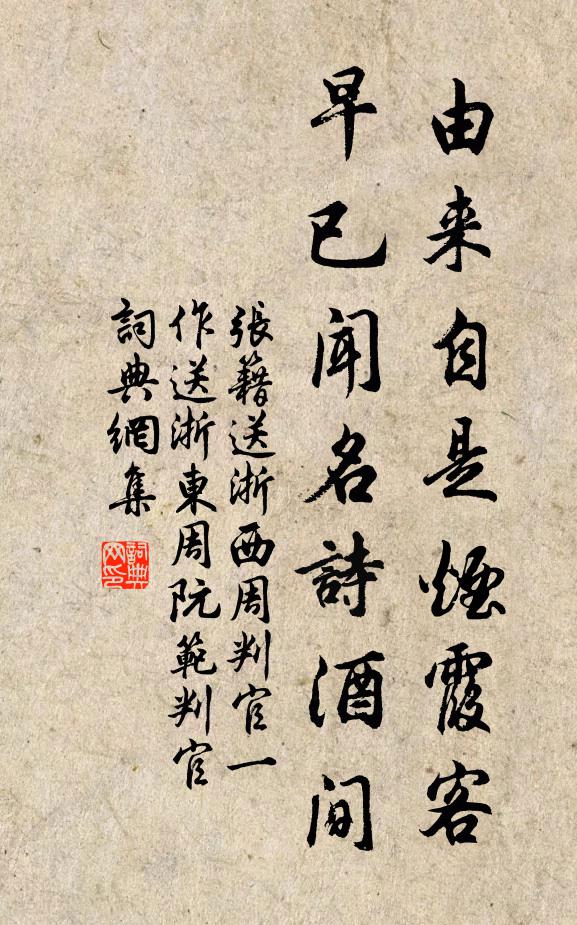 由来自是煙霞客
早已聞名詩酒間
張籍送浙西周判官一
作送浙東周阮範判官
詞典網集
詞典网印